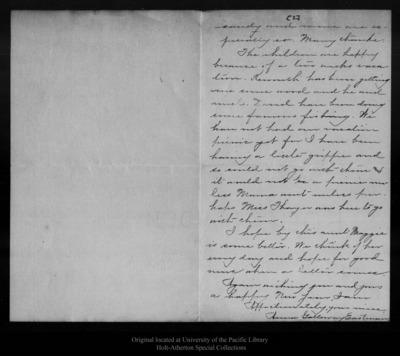 candy and mine are es-
pecially so. Many thanks.
The children are happy
because of a two weeks vaca
tion. Kenneth has been getting
some wood and he and
Fred have been doing
some famous fishing. We
have not had our vacation
picnic yet for I have been
having a little grippe and
so could not go with them &
it would not be a picnic un
less Mama went unless per
haps Miss Thayer was here to go
with them.
I hope by this aunt Maggie
is some better. We think of her
every day and hope for good
news when a letter comes.
Again wishing you and yours
a happy New Year, I am
Affectionately your niece,
Anna Galloway Eastman
Original located at University of the Pacific Library
Holt-Atherton Special Collections